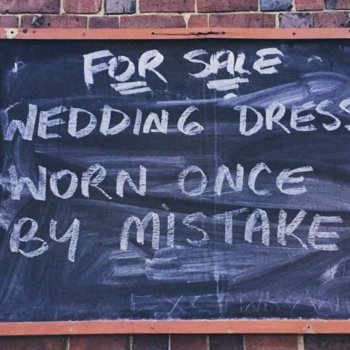 FOR SALE
WEDDING DRESS
WORN ONCE
BY MISTAKE